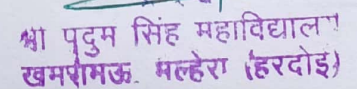 श्री पदुम सिंह महाविद्यालय
खमरौमऊ. मल्हेरा (हरदोई)